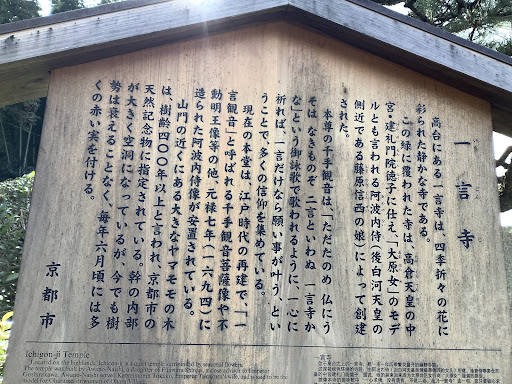 一言寺
高台にある一言寺は、四季折々の花に
彩られた静かな寺である。
この緑に覆われた寺は、高倉天皇の中
宮・建礼門院徳子に仕え、「大原女」のモデ
ルとも言われる阿波内侍（後白河天皇の
側近である藤原信西の娘）によって創建
された。
本尊の千手観音は、「ただたのめ 仏にう
そは なきものぞ 二言といわぬ 一言寺か
な」という御詠歌で歌われるように、一心に
祈れば、一言だけなら願い事が叶う、とい
うことで、多くの信仰を集めている。
現在の本堂は、江戸時代の再建で、「一
言観音」と呼ばれる千手観音菩薩像や不
動明王像等の他、元禄七年（一六九四）に
造られた阿波内侍像が安置されている。
山門の近くにある大きなヤマモモの木
は、樹齢四〇〇年以上と言われ、京都市の
天然記念物に指定されている。幹の内部
が大きく空洞になっているが、今でも樹
勢は衰えることなく、毎年六月頃には多
くの赤い実を付ける。
京都市
Ichigon-ji Temple
Located on the highlands, Ichigon-ji is a quiet temple surrounded by seasonal flowers.